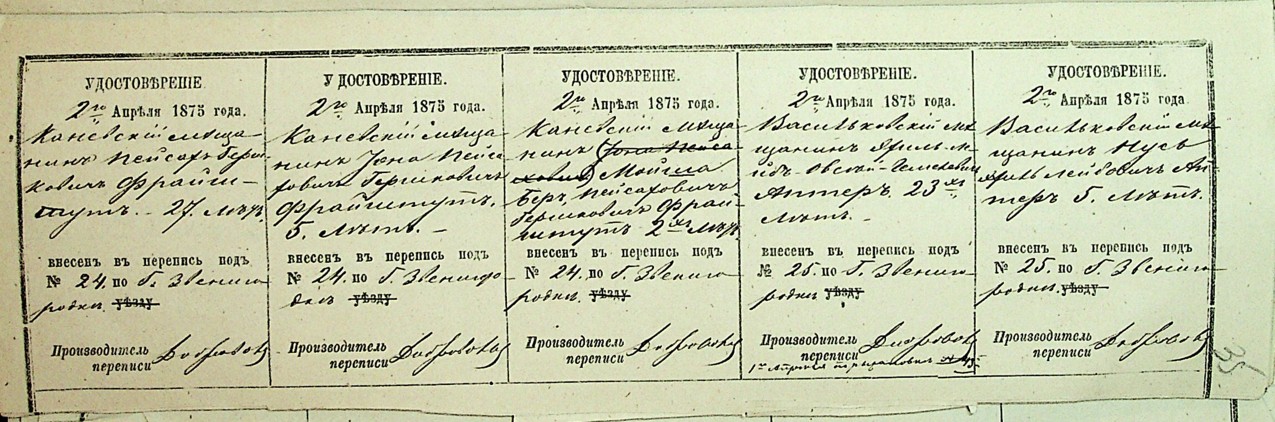 УДОСТОВѢРЕНІЕ
2го Апрѣля 1875 года.
Каневскій мѣща-
нинъ Пейсахъ Герш-
ковичъ Фрайш-
тутъ. - 27. лѣтъ
внесенъ въ перепись подъ
№ 24. по г. Звениго-
родкѣ уѣзду
Производитель
переписи
УДОСТОВѢРЕНІЕ.
2го Апрѣля 1875 года.
Каневскій мѣща-
нинъ Іона Пейса-
ховичъ Гершковичъ
Фрайштутъ.
5. лѣтъ. -
внесенъ въ перепись подъ
№ 24. по г. Звениго-
родкѣ уѣзду
Производитель
переписи
УДОСТОВѢРЕНІЕ.
2го Апрѣля 1875 года.
Каневскій мѣща-
нинъ (Іона Пейса
ховичъ) Мойша
Беръ Пейсаховичъ
Гершковичъ Фрай-
штутъ 2хъ лѣтъ
внесенъ въ перепись подъ
№ 24. по г. Звениго-
родкѣ уѣзду
Производитель
переписи
УДОСТОВѢРЕНІЕ.
2го Апрѣля 1875 года.
Васильковскій мѣ-
щанинъ
Аптеръ. 23хъ
лѣтъ. -
внесенъ въ перепись подъ
№ 25. по г. Звениго-
родкѣ уѣзду
Производитель
переписи
УДОСТОВѢРЕНІЕ.
2го Апрѣля 1875 года
Васильковскій мѣ-
щанинъ Нусь
Лейбовичъ Ап-
теръ 5. лѣтъ.
внесенъ въ перепись подъ
№ 25. по г. Звениго-
родкѣ. уѣзду
Производитель
переписи
35.